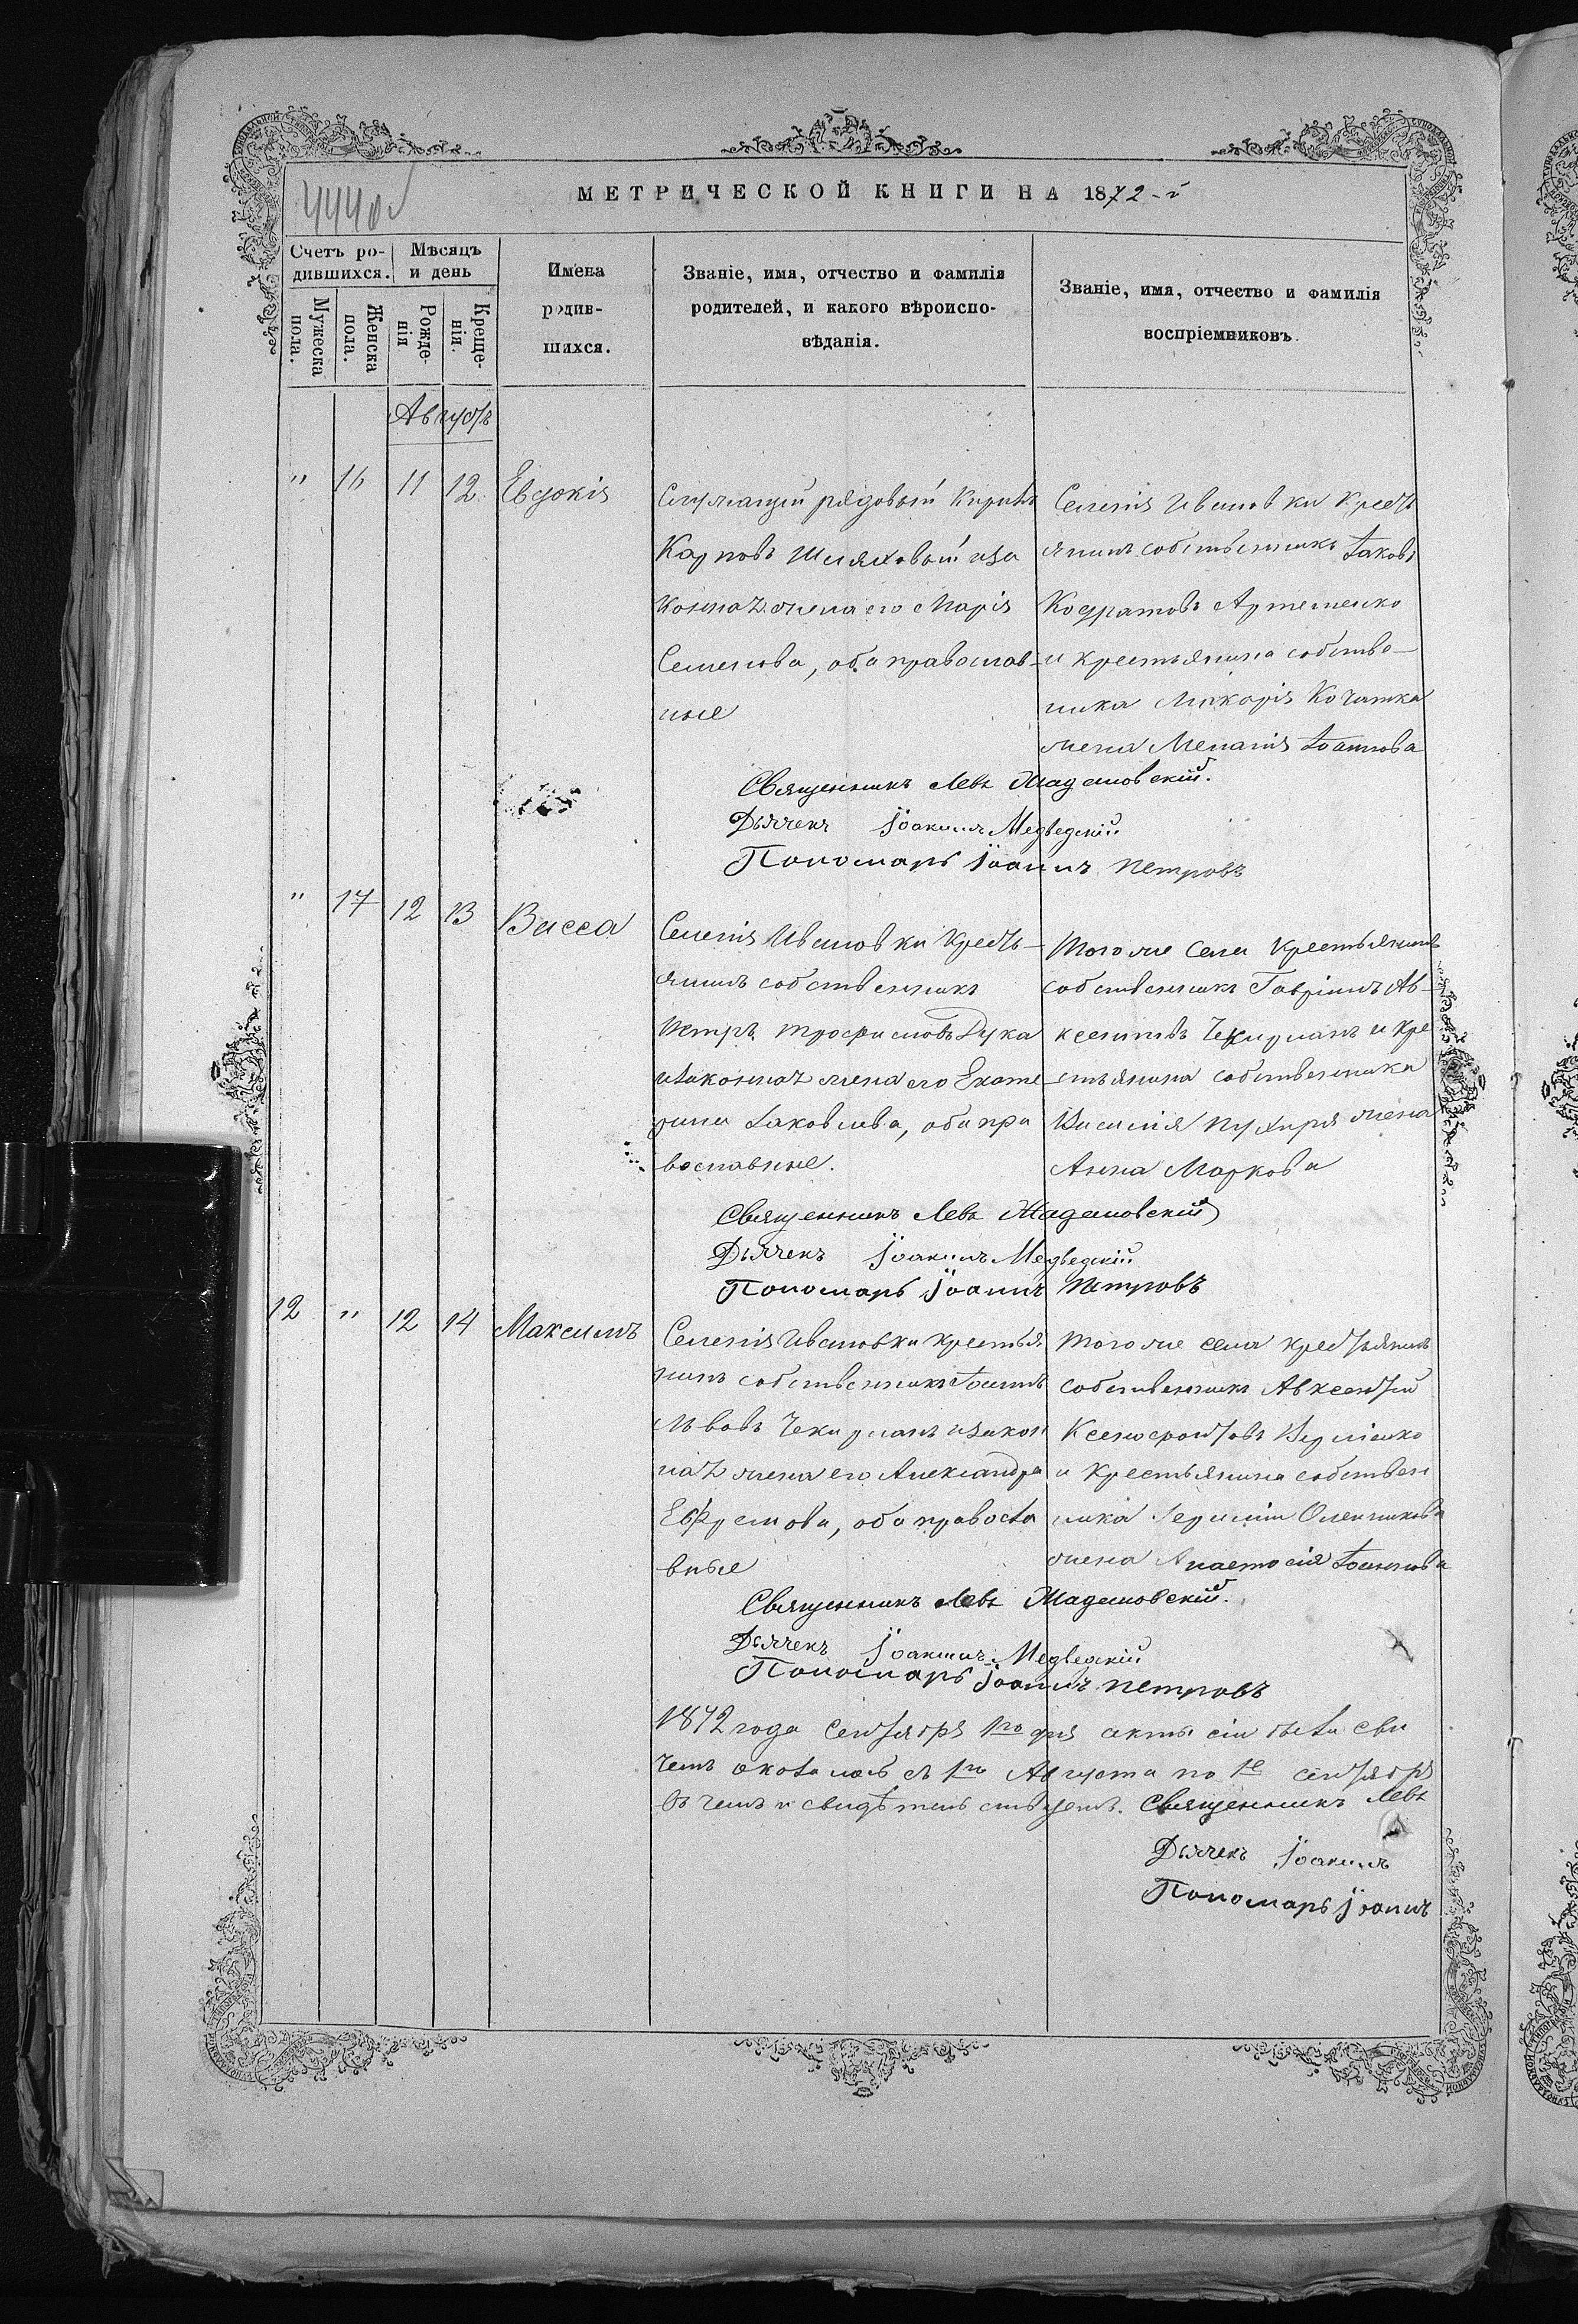 444об
МЕТРИЧЕСКОЙ КНИГИ НА 1872-й
Счетъ ро-
дившихся.
Мѣсяцъ
и день
Мужеска
пола.
Женска
пола.
Рожде-
нія
Креще-
нія.
Имена
родив-
шихся.
Званіе, имя, отчество и фамилія
родителей, и какого вѣроиспо-
вѣданія.
Званіе, имя, отчество и фамилія
воспріемниковъ.
Августъ
" 16 11 12 Евдокія
Служащій рядовый Кирилъ
Карповъ Шляховый иза
конная жена его Марія
Семенова, оба православ-
ные
Селенія Ивановки Крест
янинъ собственникъ Іаковъ
Кодратовъ Артеменко
и крестьянина собстве-
ника Макарія Кочатка
жена Меланія Іоаннова
Священникъ Левъ Жадановскій.
Дьячекъ Іоакимъ Медведскій
Пономарь Іоаннъ Петровъ
" 17 12 13 Васса
Селенія Ивановки Кресть-
янинъ собственникъ
Петръ Трофимовъ Дука
изаконная жена его Екате
рина Іаковлева, оба пра
вославные.
Того же Села Крестьянинъ
собственникъ Гавріилъ Ав-
ксентіевъ Чекурланъ и кре
стьянина собственника
Василія Пухиря жена
Анна Маркова
Священникъ Левъ Жадановскій
Дьячекъ Іоакимъ Медведскій
Пономарь Іоаннъ Петровъ
12 " 12 14 Максимъ
Селенія Ивановки крестья
нинъ собственникъ Іоаннъ
Львовъ Чекурланъ изакон
ная жена его Александра
Ефремова, оба правосла
вные
Того же села крестьянинъ
собственникъ Авксентій
Ксенофонтовъ
и Крестьянина собствен
ника Оленникова
жена Анастасія Іоаннова
Священникъ Левъ Жадановскій.
Дьячекъ Іоакимъ Медведскій
Пономарь Іоаннъ Петровъ
1872 года Сентября 1го дня акты сіи
съ 1го Августа по 1е сентября
въ чемъ и свидѣтельствуемъ. Священникъ Левъ
Дьячекъ Іоакимъ
Пономарь Іоаннъ